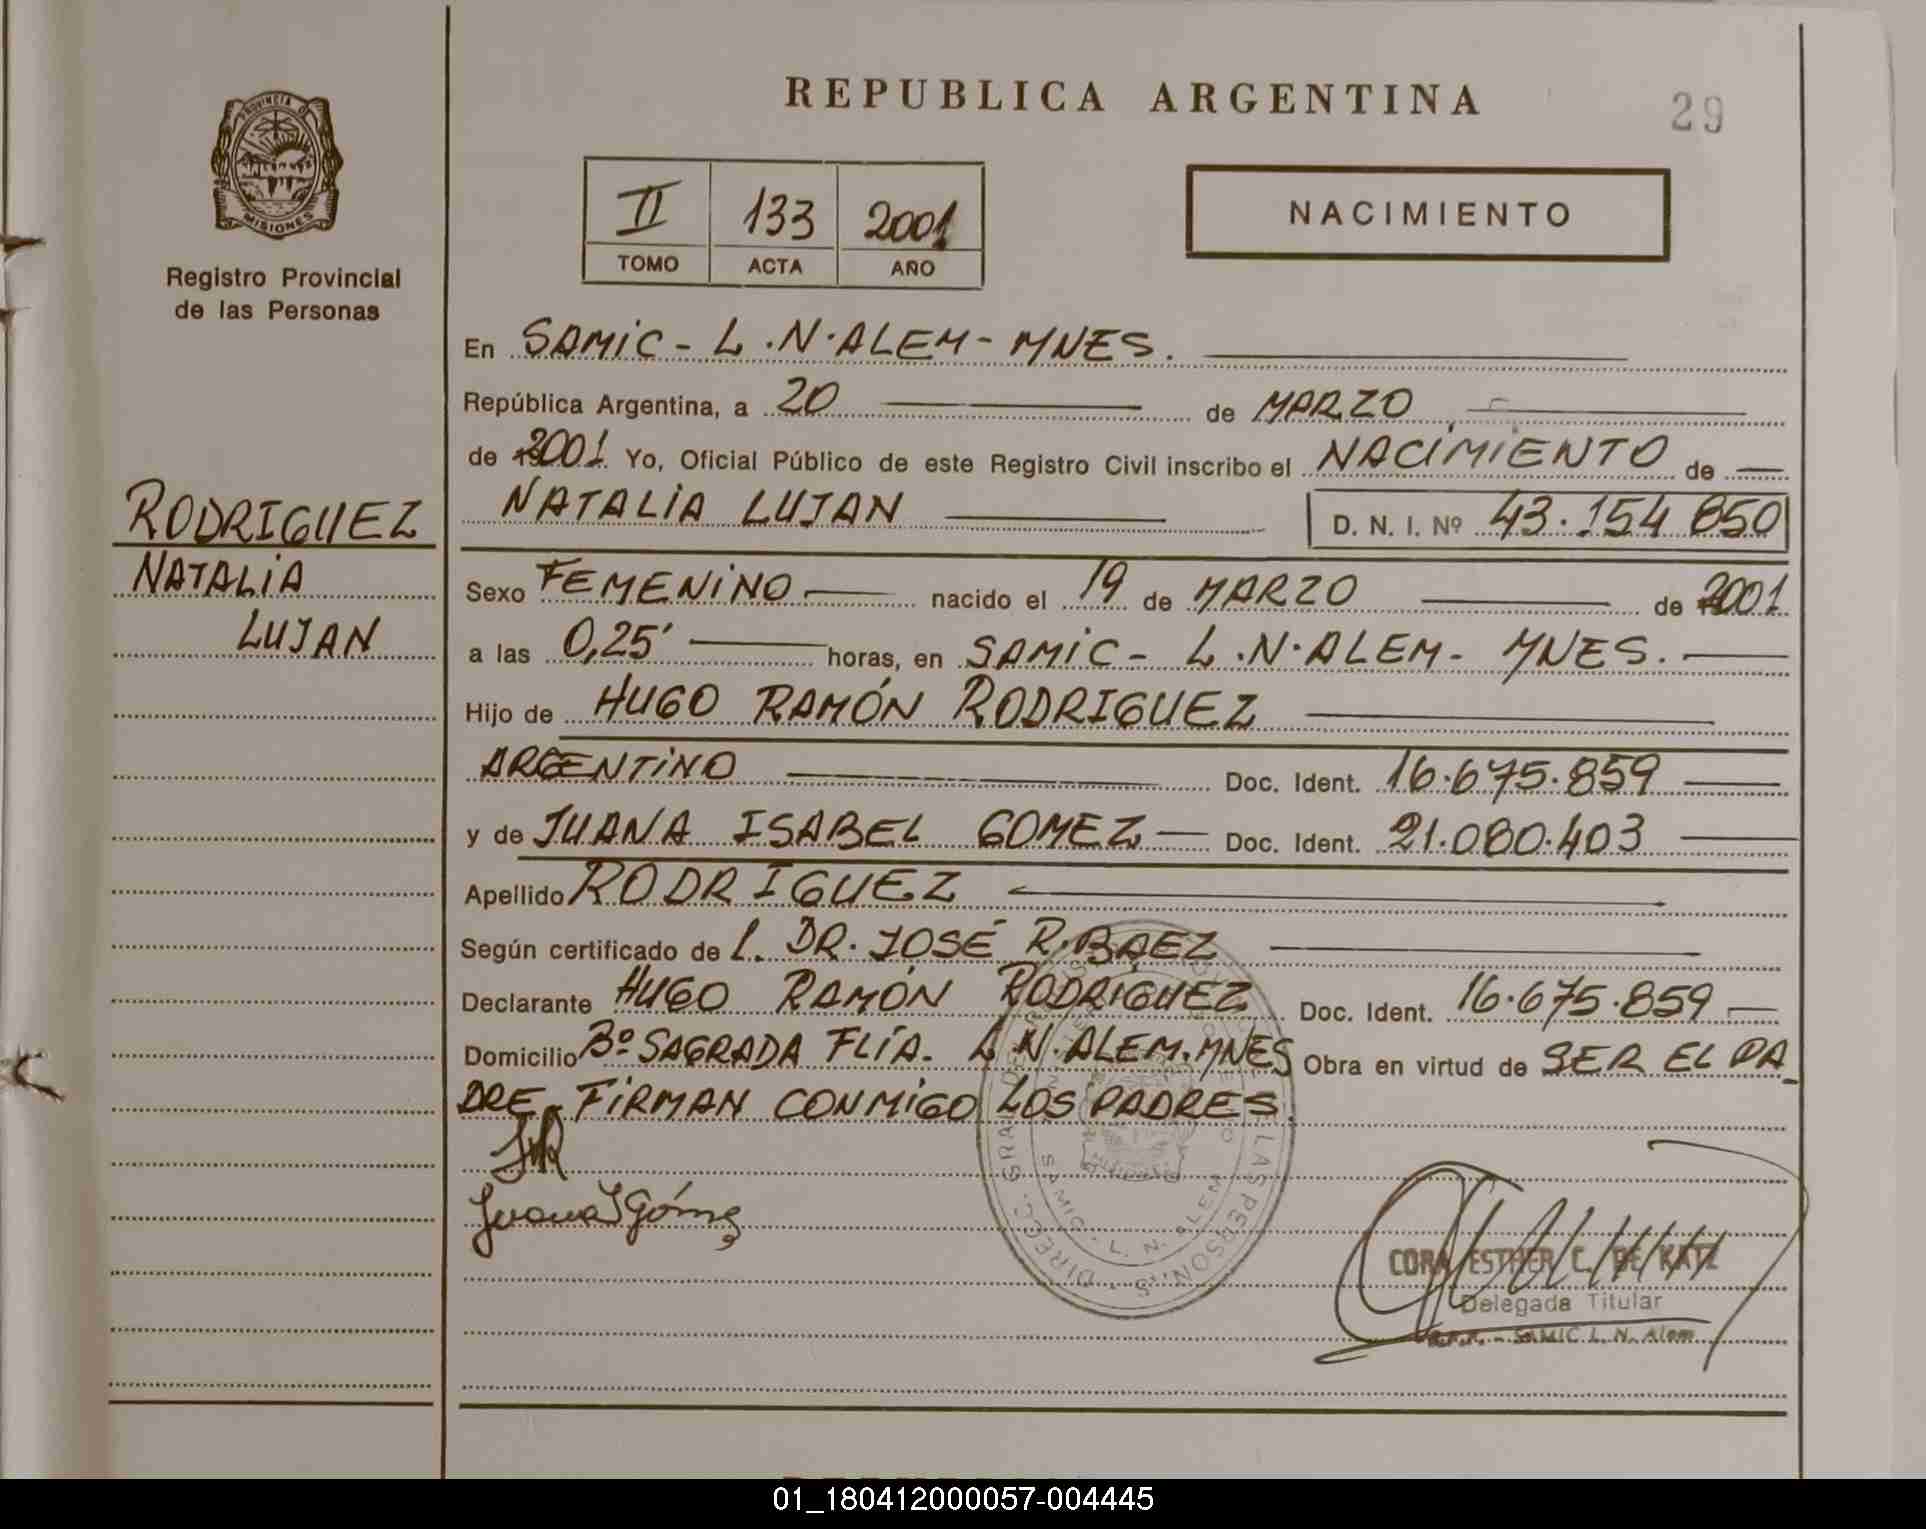 REPUBLICA ARGENTINA
29
PROVINCIA D
MISIONES
Registro Provincial
de las Personas
II 133 2001
TOMO ACTA AÑO
NACIMIENTO
En SAMIC - L.N.ALEM - MNES.
República Argentina, a 20 de MARZO
de 2001. Yo, Oficial Público de este Registro Civil inscribo el NACIMIENTO de
NATALIA LUJAN D. N. I. Nº 43.154.850
RODRIGUEZ
NATALIA
LUJAN
Sexo FEMENINO nacido el 19 de MARZO de 2001
a las 0,25' horas, en SAMIC - L.N.ALEM - MNES.
Hijo de HUGO RAMÓN RODRIGUEZ
ARGENTINO Doc. Ident. 16.675.859
y de JUANA ISABEL GOMEZ Doc. Ident. 21.080.403
Apellido RODRIGUEZ
Según certificado de L. DR. JOSÉ R. BAEZ
Declarante HUGO RAMÓN RODRIGUEZ Doc. Ident. 16.675.859
Domicilio Bº SAGRADA FLIA. L.N.ALEM.MNES Obra en virtud de SER EL PA_
DRE. FIRMAN CONMIGO LOS PADRES.
Juana I Gómez
SAMIC - L. N. ALEM
CORA ESTHER C. DE KATZ
Delegada Titular
SAMIC L. N. Alem
01_180412000057-004445